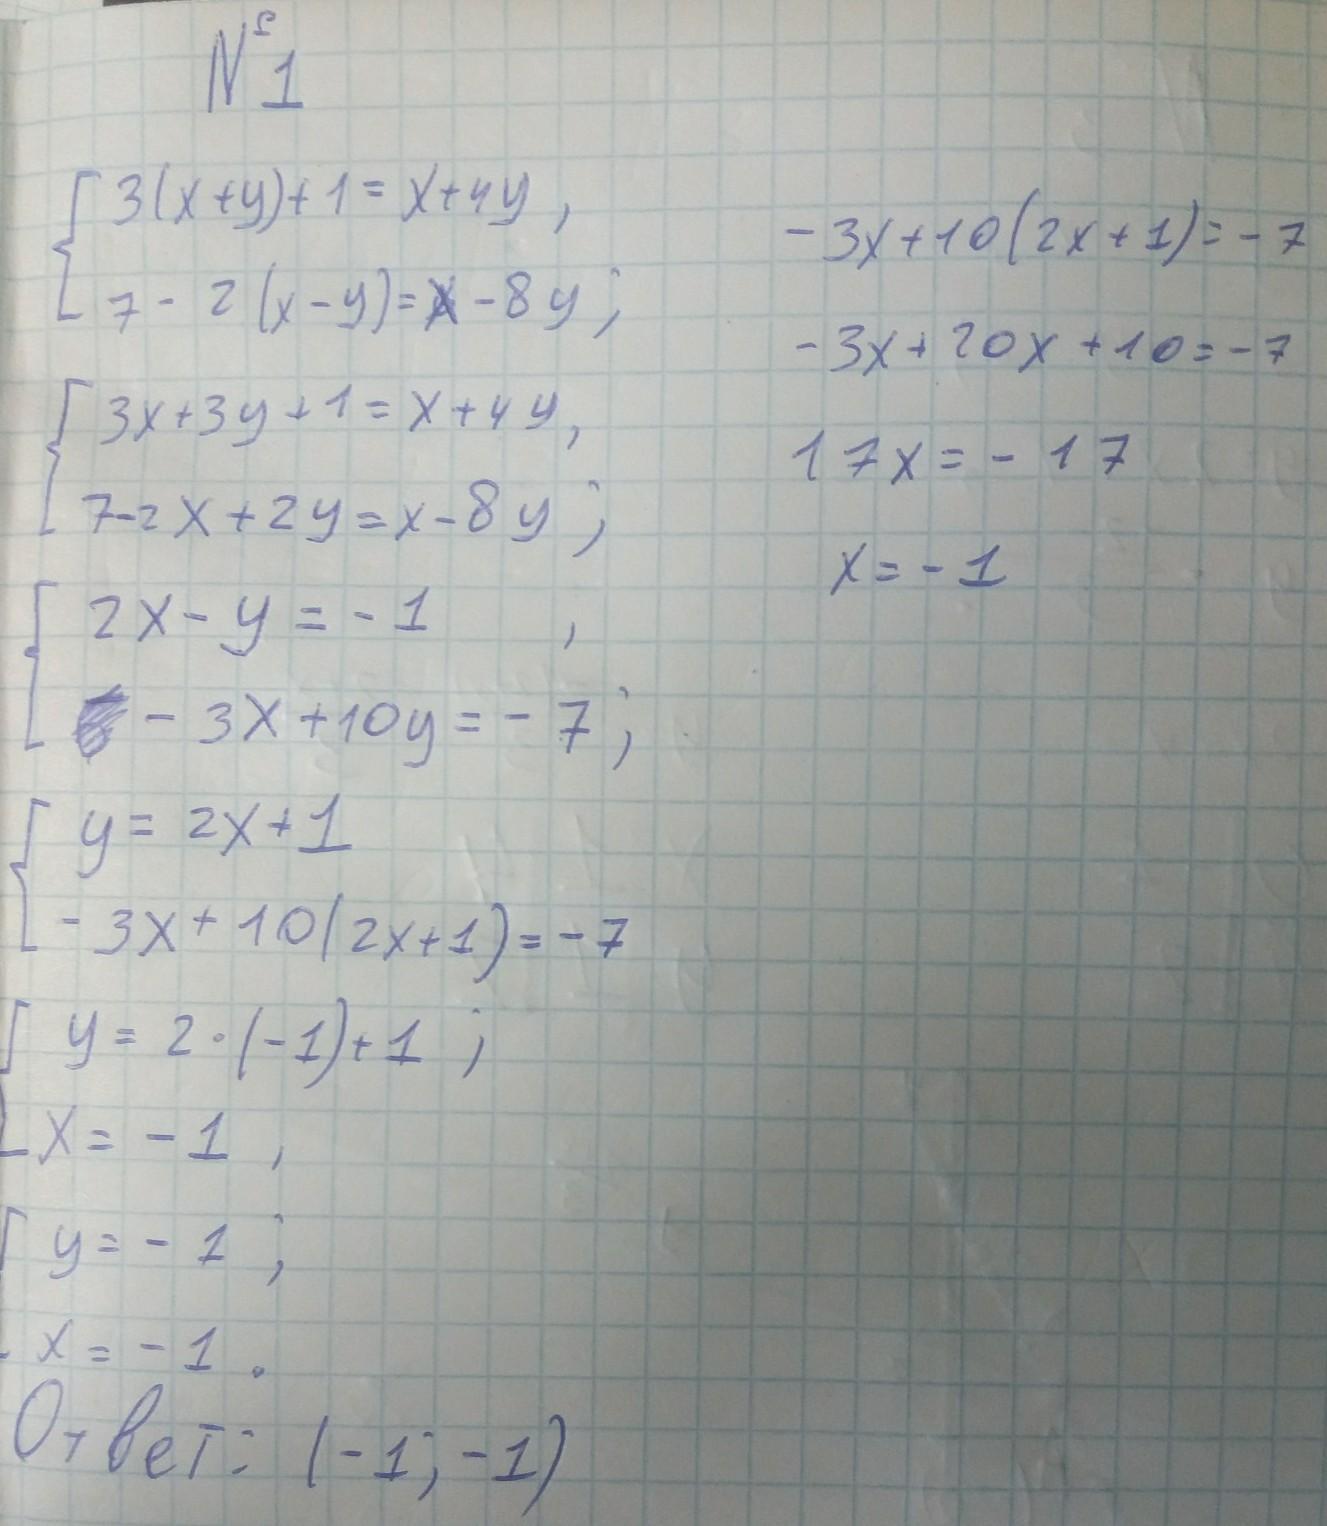 №1
3(x+y)+1=x+4y,
7-2(x-y)=x-8y;
3x+3y+1=x+4y,
7-2x+2y=x-8y;
2x-y=-1,
-3x+10y=-7;
y=2x+1
-3x+10(2x+1)=-7
y=2·(-1)+1;
x=-1,
y=-1;
x=-1.
Ответ: (-1;-1)
-3x+10(2x+1)=-7
-3x+20x+10=-7
17x=-17
x=-1